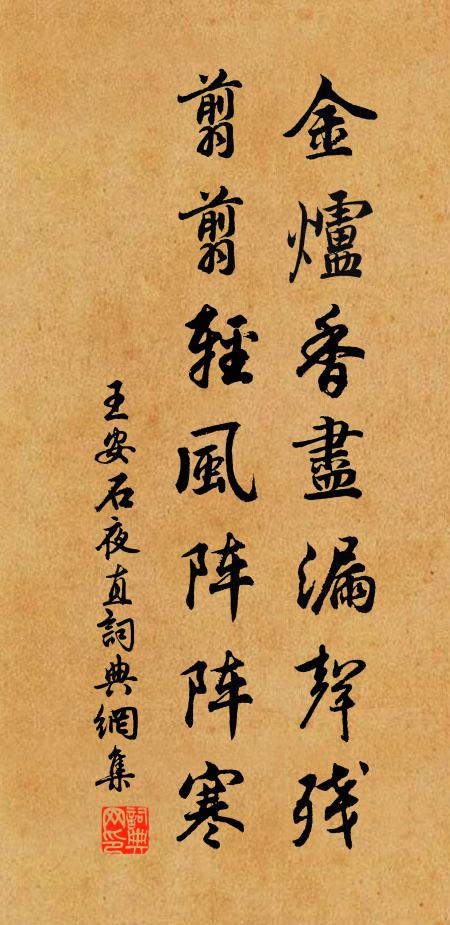 金爐香盡漏聲残
翦翦輕風阵阵寒
王安石夜直詞典網集
詞典网印